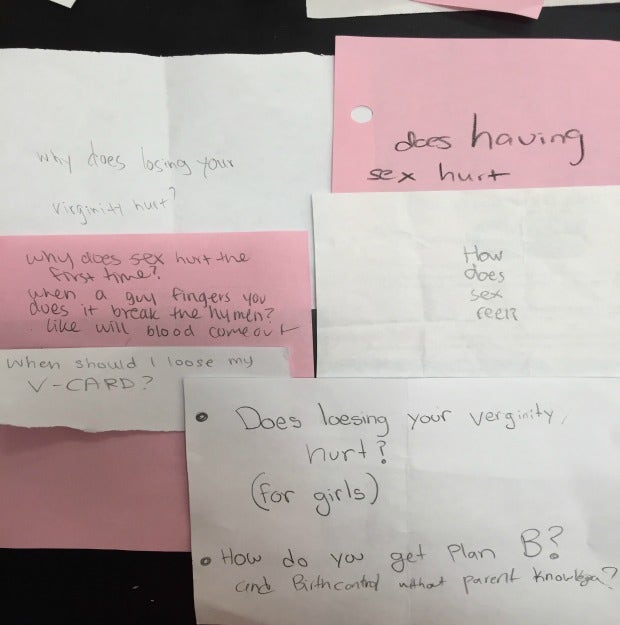 why does losing your
virginity hurt?
does having
sex hurt
why does sex hurt the
first time?
when a guy fingers you
does it break the hymen?
like will blood come out
How
does
sex
feel?
When should I loose my
V-CARD?
• Does loesing your verginity,
hurt?
(for girls)
• How do you get Plan B?
and Birthcontrol without parent